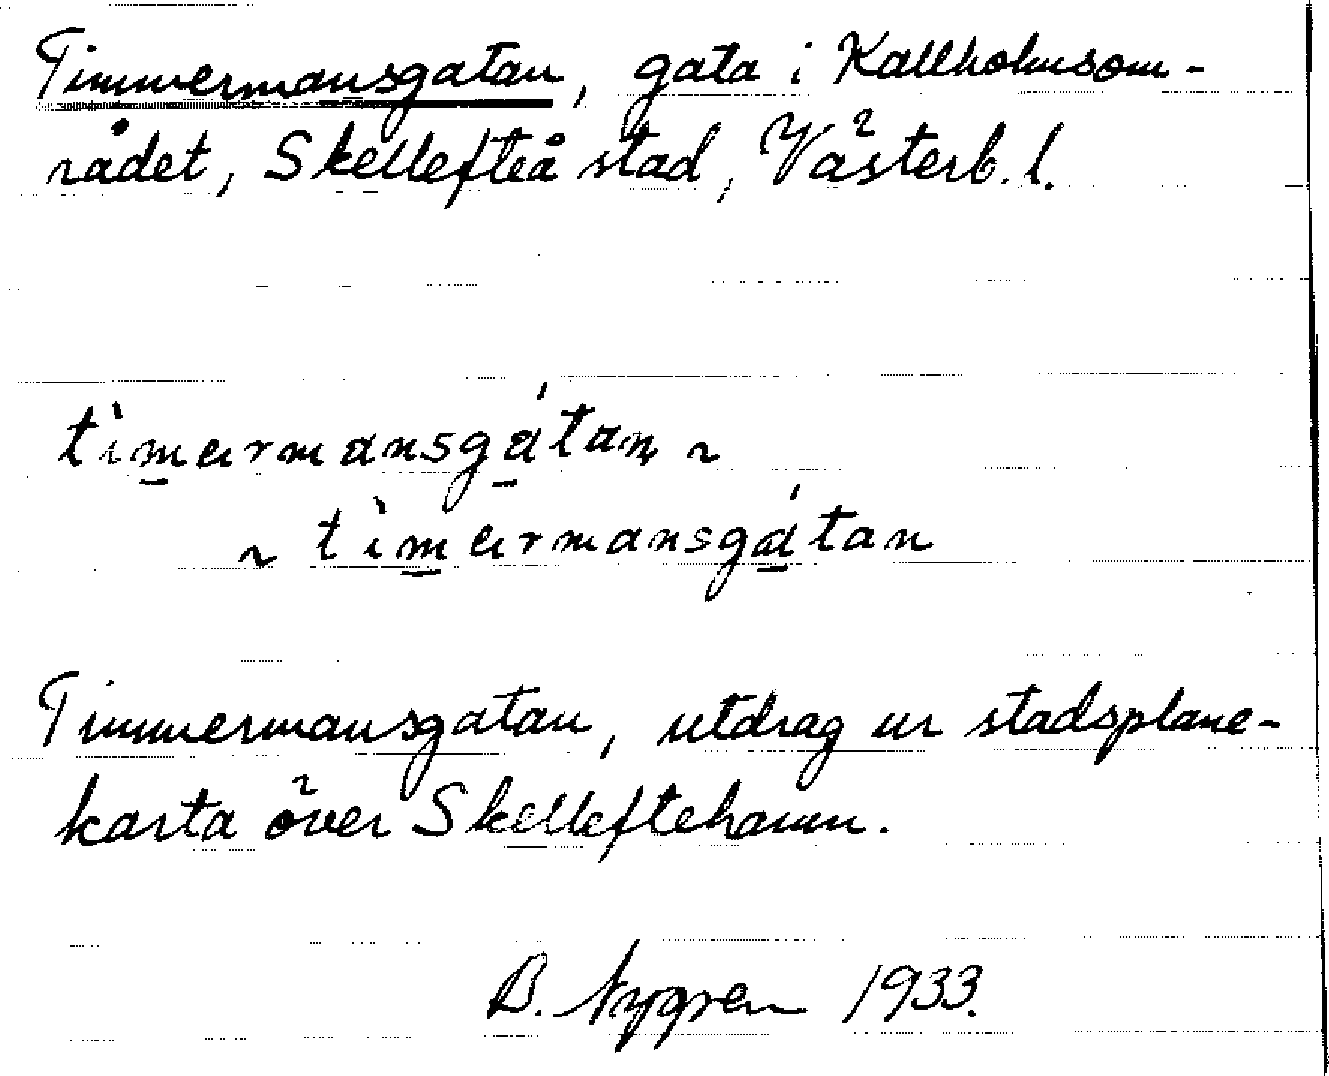 Timmermansgatan, gata i Kallholmsom-
rådet, Skellefteå stad, Västerb. l.
tìmærmansgátan ~
~ tìmærmansgátan
Timmermansgatan, utdrag ur stadsplane-
karta över Skelleftehamn.
B. Nygren 1933.